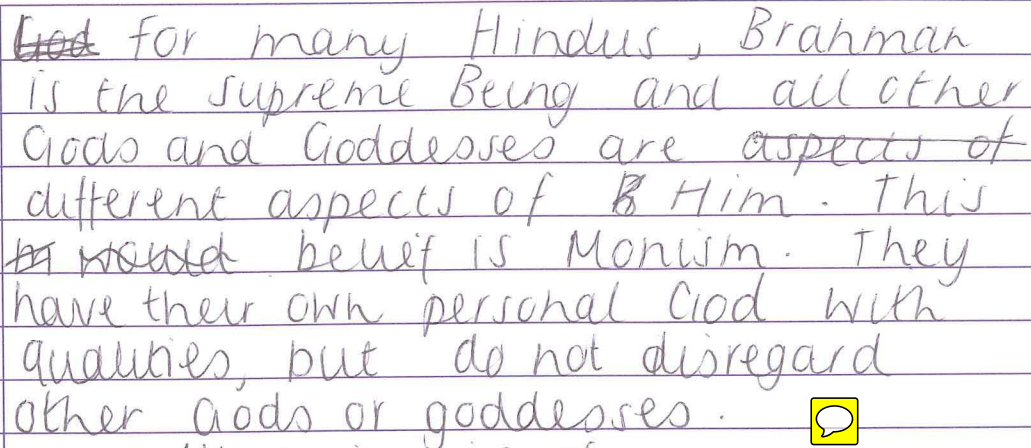 God for many Hindus, Brahman
is the supreme Being and all other
Gods and Goddesses are aspects of
different aspects of B Him. This
would belief is Monism. They
have their own personal God with
qualities, but do not disregard
other Gods or goddesses.